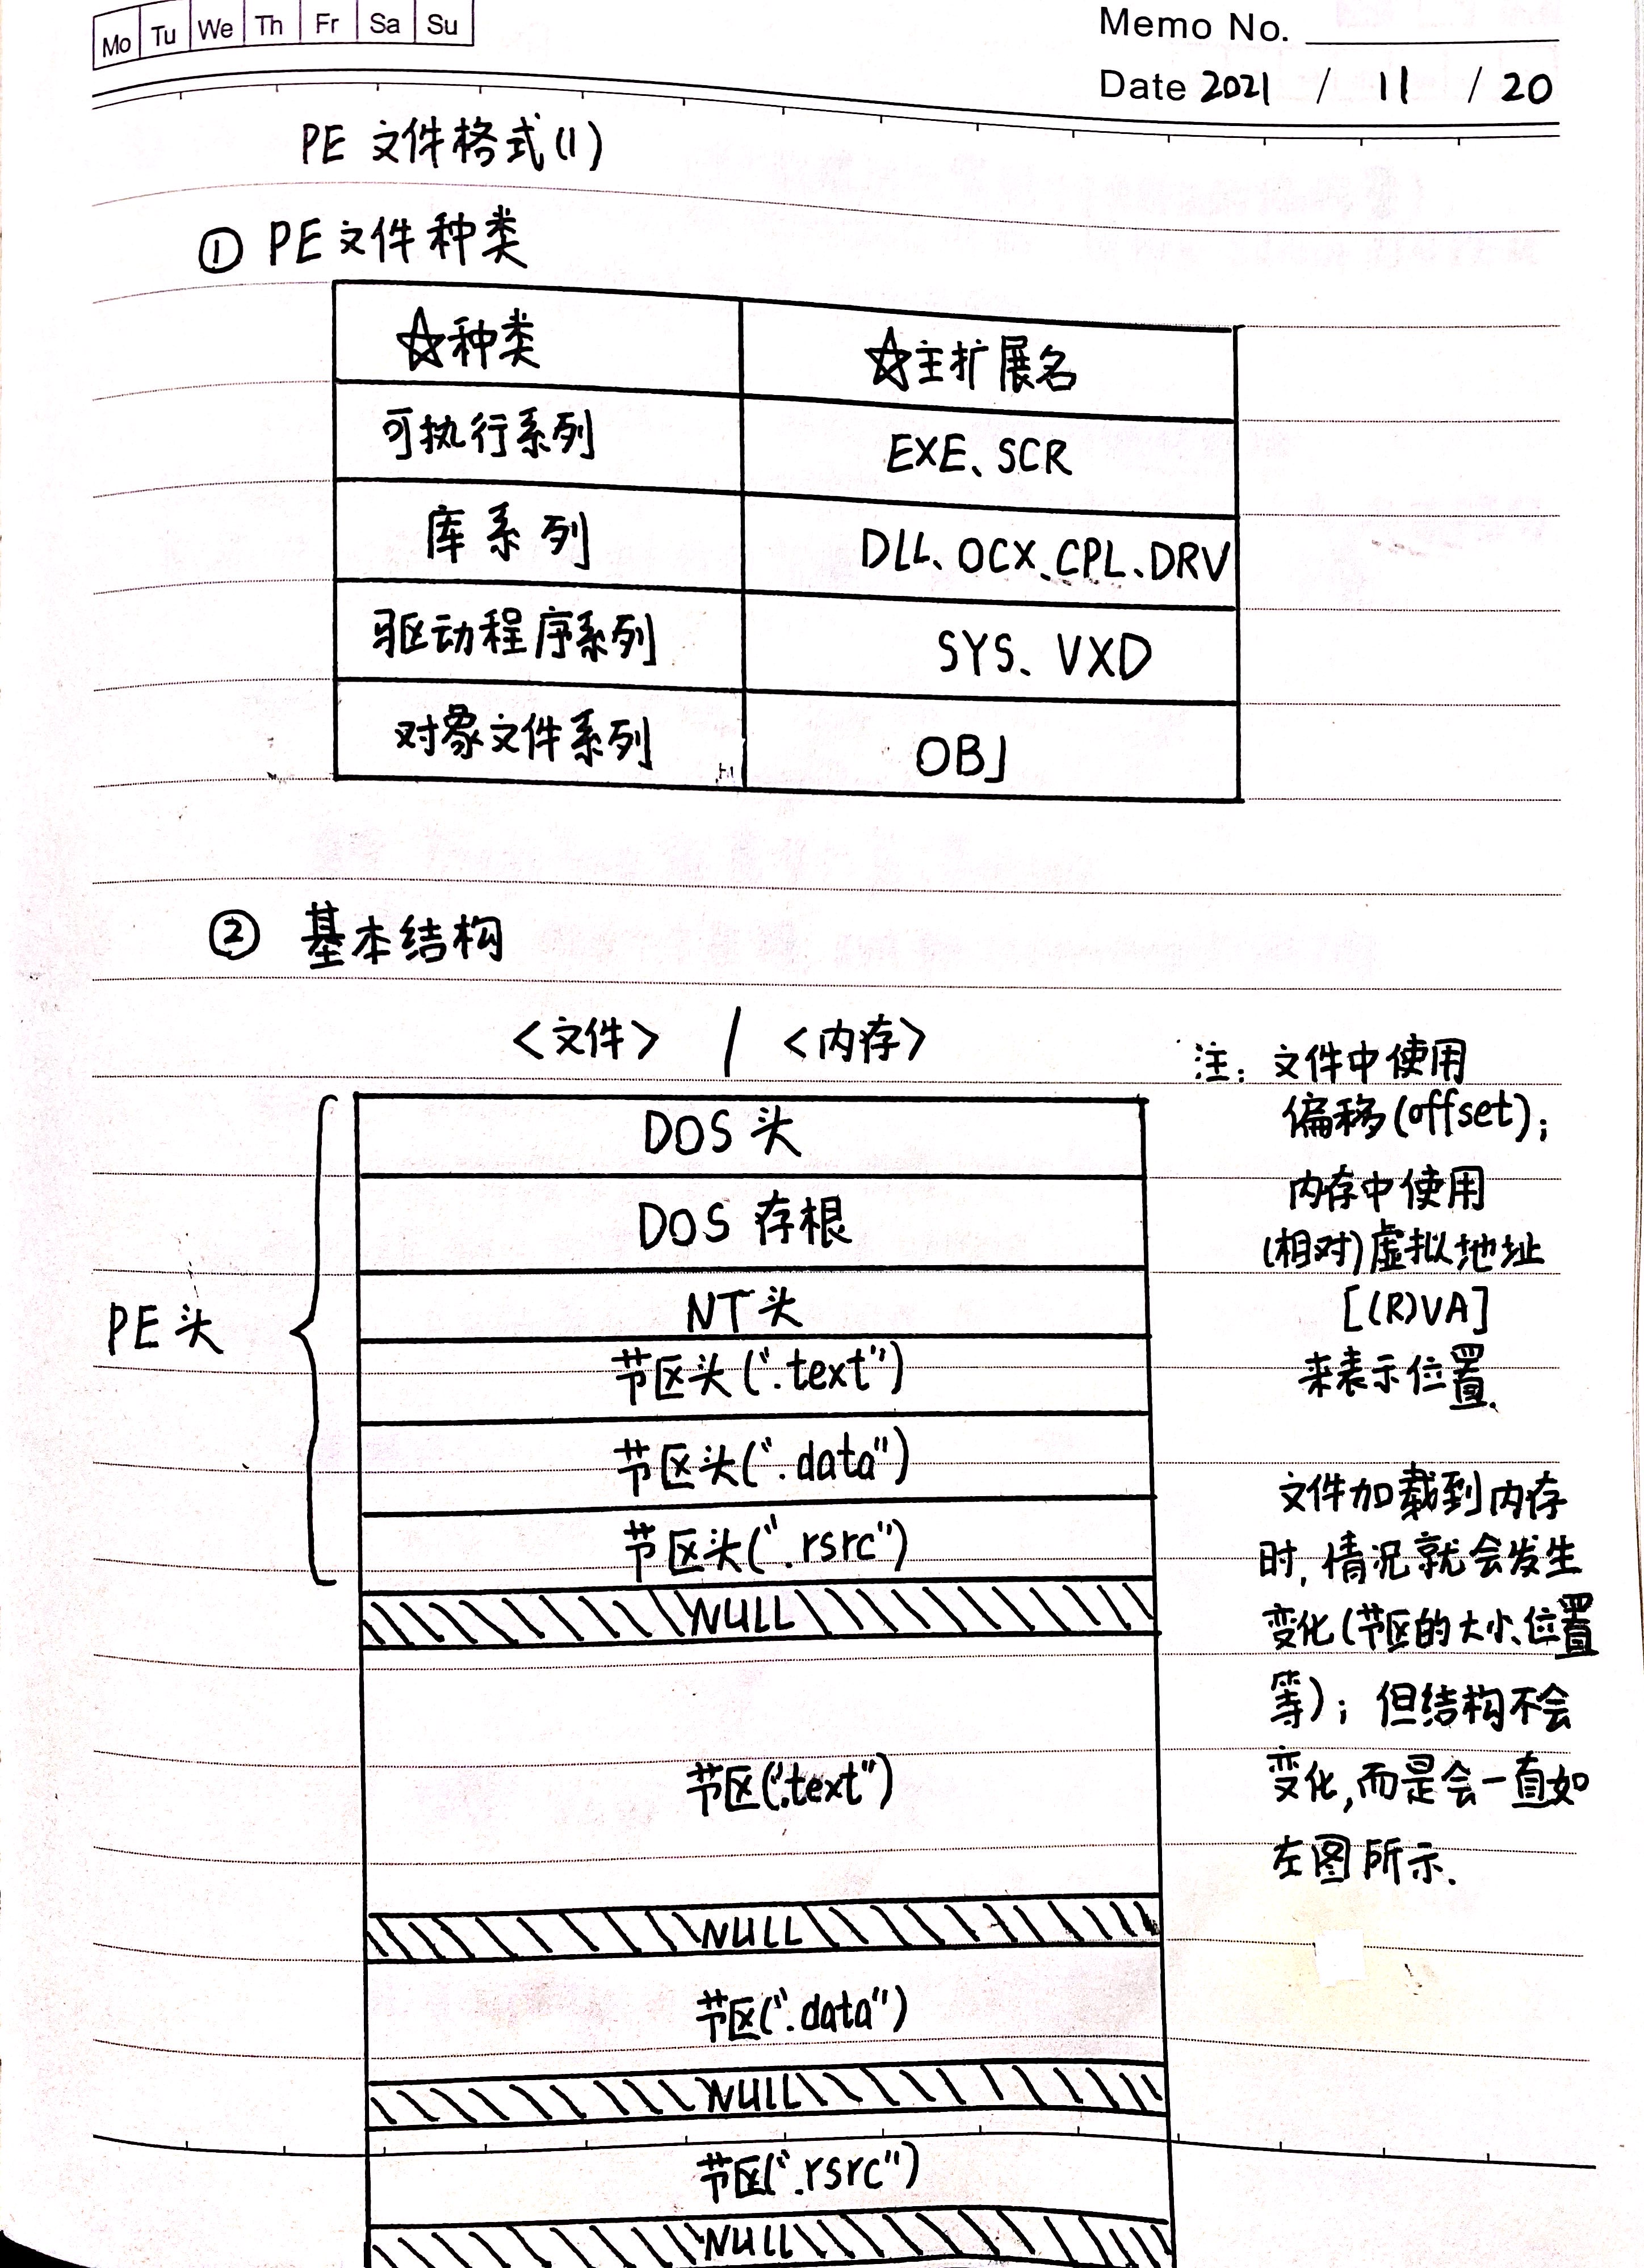 Mo Tu We Th Fr Sa Su
Memo No.
Date 2021 / 11 / 20
PE 文件格式(1)
① PE文件种类
☆种类 ☆主扩展名
可执行系列 EXE、SCR
库系列 DLL、OCX、CPL、DRV
驱动程序系列 SYS、VXD
对象文件系列 OBJ
② 基本结构
<文件> / <内存>
PE头
DOS 头
DOS 存根
NT头
节区头(".text")
节区头(".data")
节区头(".rsrc")
NULL
节区(".text")
NULL
节区(".data")
NULL
节区(".rsrc")
NULL
注: 文件中使用
偏移(offset);
内存中使用
(相对)虚拟地址
[(R)VA]
来表示位置.
文件加载到内存
时,情况就会发生
变化(节区的大小、位置
等);但结构不会
变化,而是会一直如
左图所示.